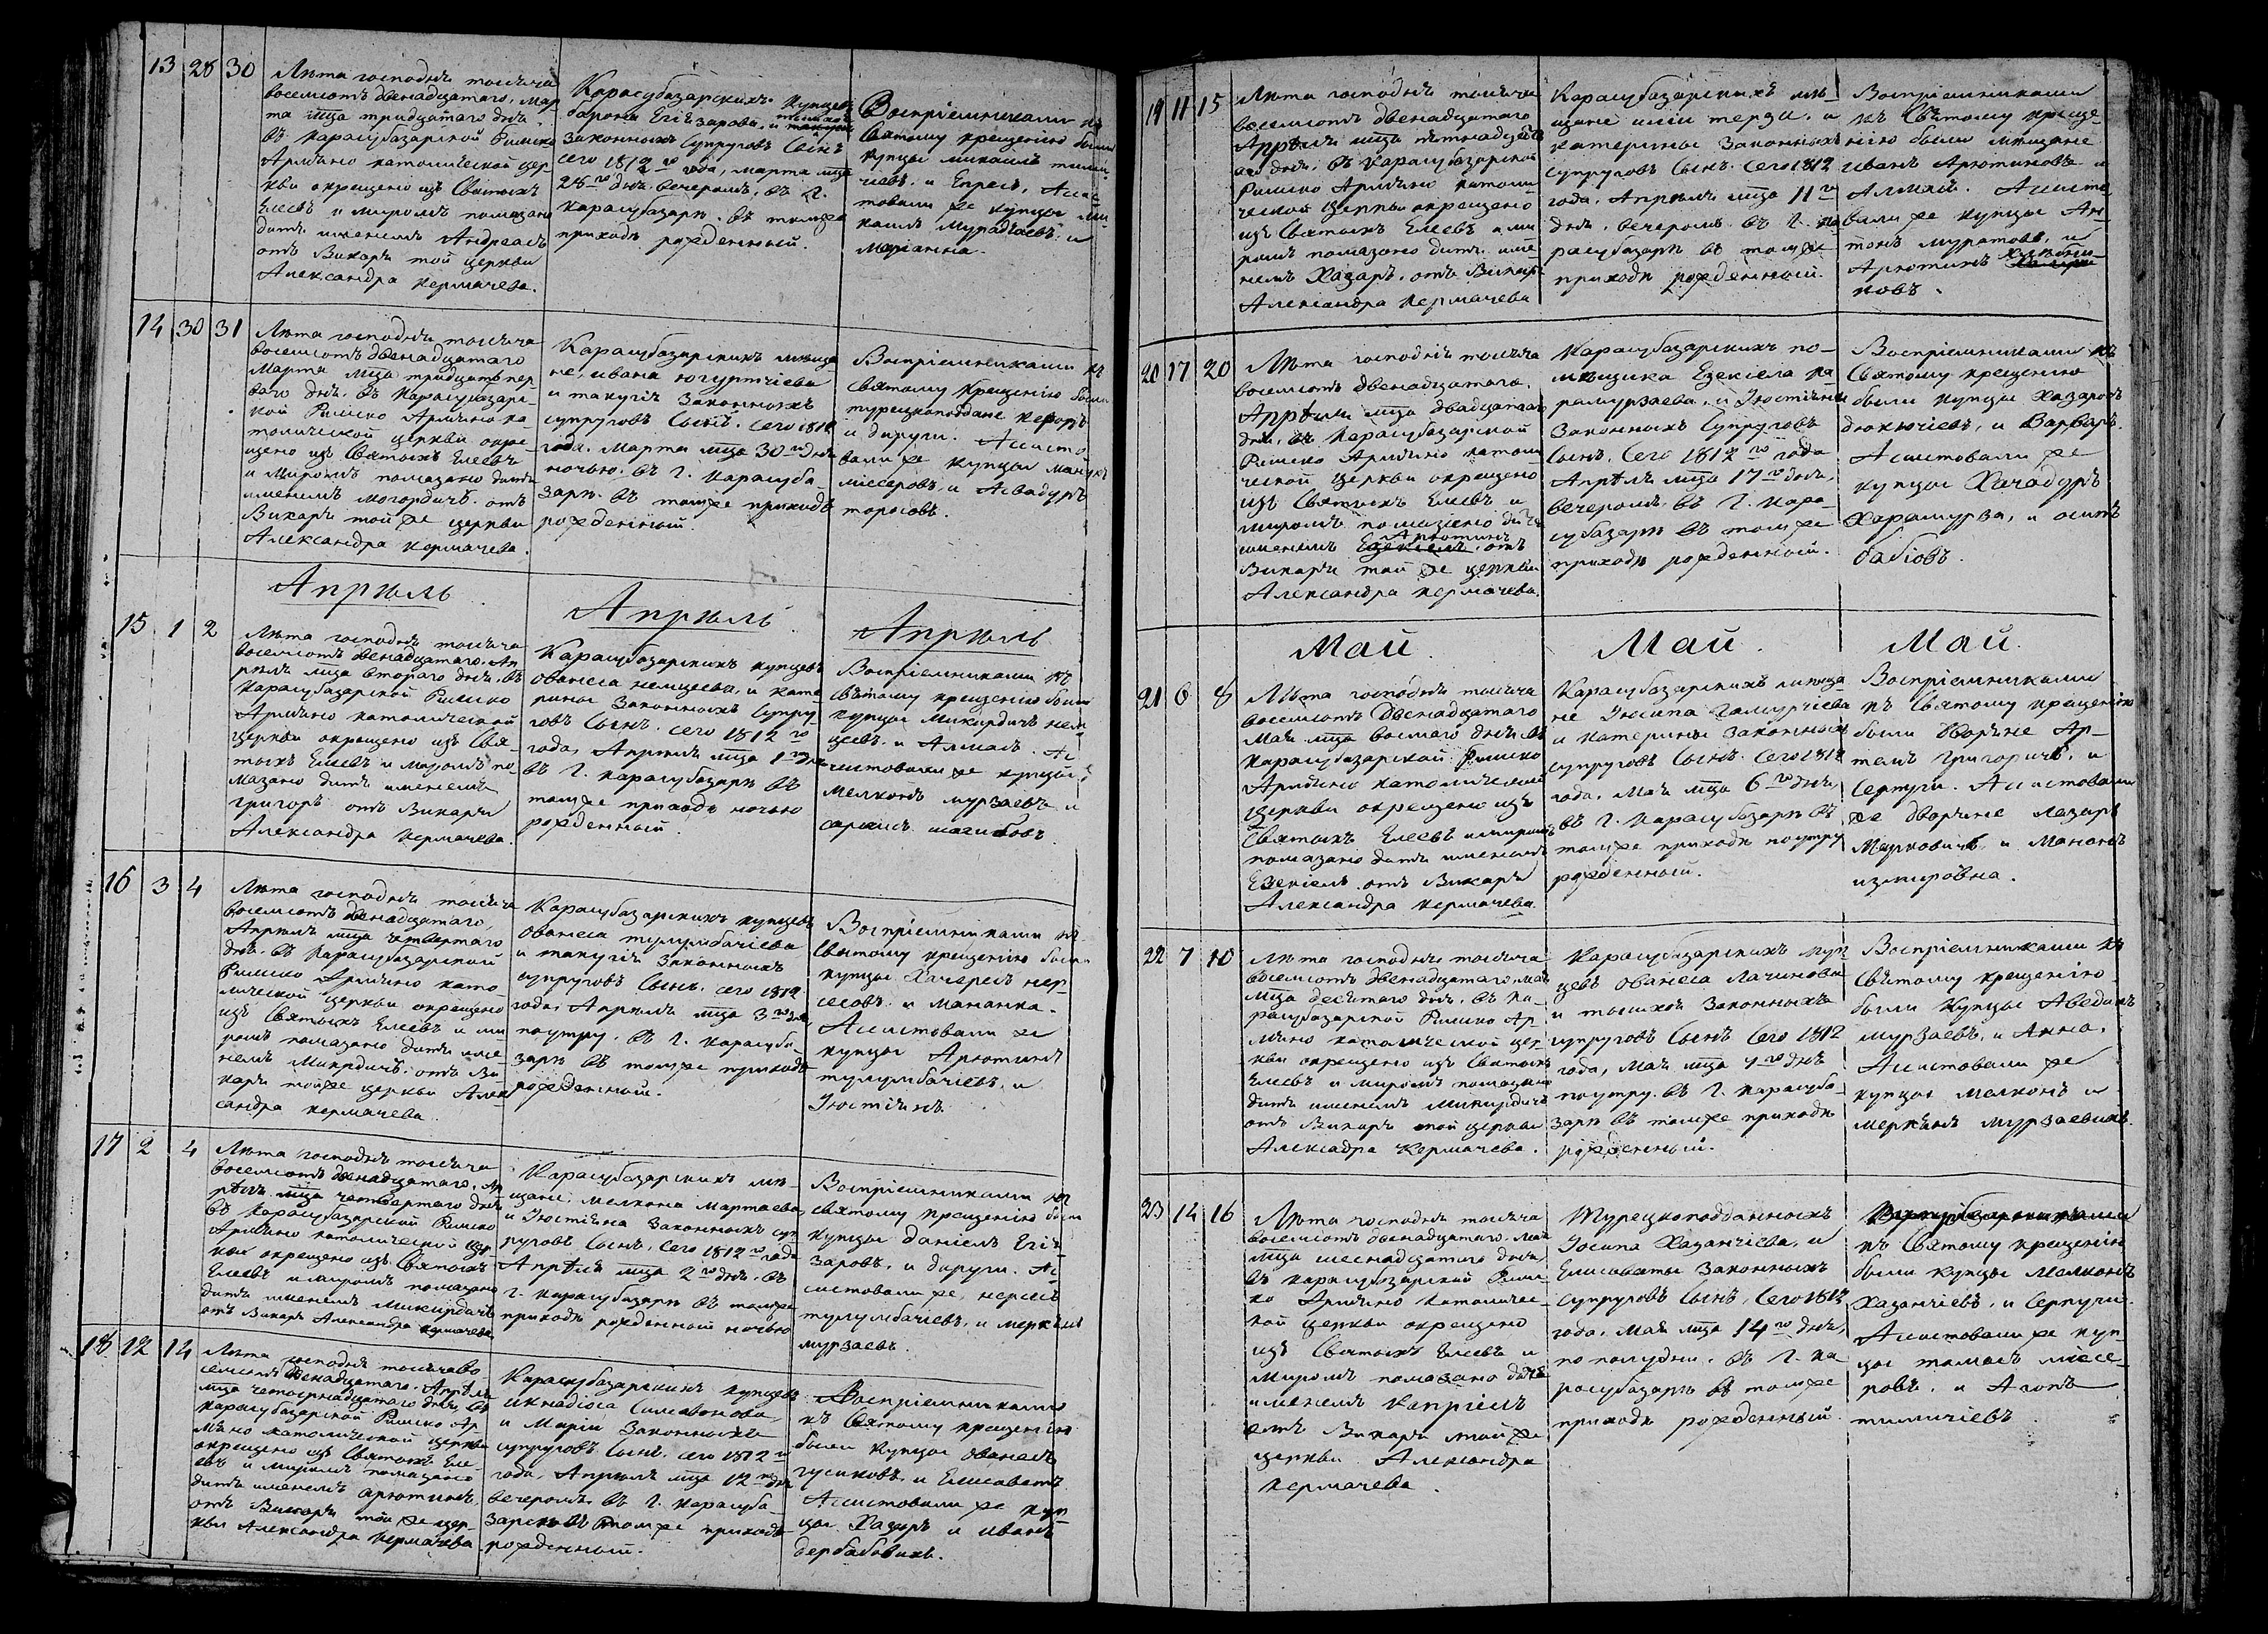 13 28 30
Лѣта господнѣ тысяча
восемсотъ двенадцатаго, Мар
та мца тридцатаго днѣ.
въ карасубазарской Римско
Армѣно католической цер-
кви окрещено изъ Святыхъ
Елеевъ и миромъ помазано
дитѣ именемъ Андреасъ
отъ Викарѣ той церкви
Александра кермачева.
Карасубазарскихъ купцевъ
Законныхъ супруговъ Сынъ
сего 1812го года, марта мца
28го днѣ вечеромъ, въ г.
карасубазарѣ. въ томъ же
приходѣ рожденный.
Воспріемниками къ
Святому крещенію были
купцы михаилъ
Марианна.
14 30 31
Лѣта господнѣ тысяча
восемсотъ двенадцатаго
Марта мца тридцать пер-
ваго днѣ. въ Карасубазарс-
кой Римско Армѣно ка-
толической церкви окре-
щено изъ Святыхъ Елеевъ
и миромъ помазано дитѣ
именемъ могордичъ. отъ
Викарѣ той же церкви
Александра кермачева.
Карасубазарскихъ мѣща
не, ивана югуртчіева
и такугіи Законныхъ
супруговъ Сынъ. сего 1812
года. Марта мца 30го днѣ
ночью. въ г. Карасуба-
зарѣ. въ томъ же приходѣ
рожденный.
Воспріемниками къ
Святому Крещенію были
турецкоподдане керопъ
и дируги. Асисто-
вали же купцы манукъ
місеровъ, и Асвадуръ
торосовъ.
Апрѣль
Апрѣль
Апрѣль
15 1 2
Лѣта господнѣ тысяча
восемсотъ двенадцатаго. Ап
рѣлѣ мца втораго днѣ. въ
Карасубазарской Римско
Армѣно католической
церкви окрещено изъ Свѣ-
тыхъ Елеевъ и миромъ по-
мазано дитѣ именемъ
григоръ отъ Викарѣ
Александра кермачева.
Карасубазарскихъ купцевъ
Ованеса немцева, и кате
рины Законныхъ супру-
говъ Сынъ. сего 1812го
года, Апрѣлѣ мца 1го днѣ
въ г. Карасубазарѣ въ
томже приходѣ ночью
рожденный.
Воспріемниками къ
Свѣтому крещенію были
купцы Микирдичъ нем-
цевъ. и Алмасъ. Ас-
систовали же купцы
мелконъ мурзаевъ и
саркисъ
16 3 4
Лѣта господнѣ тысяча
восемсотъ двенадцатаго,
Апрѣлѣ мца четвертаго
днѣ. въ Карасубазарской
Римско Армѣно като-
лической церкви окрещено
изъ Святыхъ Елеевъ и ми-
ромъ помазано дитѣ име-
немъ Микрдичъ. отъ Ви-
карѣ той же церкви Алек-
сандра кермачева.
Карасубазарскихъ купцевъ
Ованеса тулумбачіева
и такугіи Законныхъ
супруговъ Сынъ. сего 1812
года, Апрѣлѣ мца 3го днѣ
поутру. въ г. Карасуба-
зарѣ въ томже приходѣ
рожденный.
Воспріемниками къ
Свѣтому крещенію были
купцы Хачересъ нер-
сесовъ. и мананка.
Асистовали же
купцы Арютинъ
тулумбачіевъ, и
Іюстінъ
17 2 4
Лѣта господнѣ тысяча
восемсотъ двенадцатаго. Ап
рѣлѣ мца четвертаго днѣ
въ карасубазарской Римско
Армѣно католической цер-
кви окрещено изъ Святыхъ
Елеевъ и миромъ помазано
дитѣ именемъ Микирдичъ
отъ Викарѣ Александра кермачева
Карасубазарскихъ мѣ-
щане. мелкона Мартаева,
и Іюстінна Законныхъ суп
руговъ Сынъ. сего 1812го года
Апрѣлѣ мца 2го днѣ. въ
г. Карасубазарѣ въ томже
приходѣ рожденный ночью
Воспріемниками къ
Святому Крещенію были
купцы даніелъ Егіа
заровъ, и дируги. Ас-
систовали же, нерсесъ
тулумбачіевъ, и меркѣнъ
мурзаевъ.
18 12 14
Лѣта господнѣ тысяча во
семсотъ двенадцатаго. Апрѣлѣ
мца четырнадцатаго днѣ, въ
карасубазарской Римско Ар
мѣно католической церкви
окрещено изъ Святыхъ Еле-
евъ и миромъ помазано
дитѣ именемъ арютинъ
отъ Викарѣ той же цер-
кви Александра кермачева.
Карасубазарскихъ купцевъ
игнадіоса Симавонова,
и Марии Законныхъ
супруговъ Сынъ. сего 1812го
года, Апрѣлѣ мца 12го днѣ
вечеромъ. въ г. Карасуба-
зарскъ въ томже приходѣ
рожденный.
Воспріемниками
къ Святому крещенію
были купцы Ованесъ
гусиковъ. и Елисаветъ.
Асистовали же куп
цы Хазаръ и иванъ
дербабовихъ.
19 11 15
Лѣта господнѣ тысяча
восемсотъ двенадцатаго
Апрѣлѣ мца пѣтнадцат
аго днѣ. въ Карасубазарской
Римско Армѣно католи-
ческой церкви окрещено
изъ Святыхъ Елеевъ и ми
ромъ помазано дитѣ. име
немъ Хазаръ. отъ Викарѣ
Александра кермачева
Карасубазарскихъ мѣ-
щане или терзи. и
катерины Законныхъ
супруговъ Сынъ. Сего 1812
года. Апрѣлѣ мца 11го
днѣ. вечеромъ. въ г. Ка
расубазарѣ въ томже
приходѣ рожденный.
Воспріемниками
къ Свѣтому креще-
нію были мѣщане
иванъ Арютиновъ и
Алмай. Асисто-
вали же купцы Ан-
тонъ муратовъ, и
Арютинъ
новъ.
20 17 20
Лѣта господнѣ тысяча
восемсотъ двенадцатаго.
Апрѣлѣ мца двадцатаго
днѣ, въ Карасубазарской
Римско Армѣно католи
ческой церкви окрещено
изъ Святыхъ Елеевъ и
миромъ помазано дитѣ
Арютинъ
именемъ Езекіелъ. отъ
Викарѣ той же церкви
Александра кермачева.
Карасубазарскихъ по-
мѣщика Езекіела ка
рамурзаева, и Іюстінни
Законныхъ Супруговъ
Сынъ. Сего 1812го года
Апрѣлѣ мца 17го днѣ.
вечеромъ въ г. Кара-
субазарѣ въ томже
приходѣ рожденный.
Воспріемниками къ
Святому крещению
были купцы Хазаросъ
дюкючіевъ, и Варваръ.
Асистовали же
купцы Хачадуръ
Харамурза, и осипъ
бабіовъ.
Май.
Май.
Май.
21 6 8
Лѣта господнѣ тысяча
восемсотъ двенадцатаго
Маѣ мца восмаго днѣ въ
карасубазарской Римско
Армѣно католической
церкви окрещено изъ
Святыхъ Елеевъ и миромъ
помазано дитѣ именемъ
Езекіелъ. отъ Викарѣ
Александра кермачева.
Карасубазарскихъ мѣща-
не Іюсипа Гамурчіева
и катерины Законныхъ
супруговъ Сынъ. Сего 1812
года. Маѣ мца 6го днѣ,
въ г. Карасубазарѣ въ
томже приходѣ поутру
рожденный.
Воспріемниками
къ Святому крещенію
были дворѣне Ар-
темъ Григоричъ, и
Серпуги. Асистовали
же дворѣне лазарь
Марковичъ и Манонъ
измировна.
22 7 10
Лѣта господнѣ тысяча
восемсотъ двенадцатаго. маѣ
мца десѣтаго днѣ. въ ка-
расубазарской Римско Ар-
мѣно католической цер-
кви окрещено изъ Святыхъ
Елеевъ и миромъ помазано
дитѣ именемъ Микирдичъ
отъ Викарѣ той церкви
Алексадра Кермачева.
Карасубазарскихъ куп
цевъ Ованеса Лачинова
и тышхои Законныхъ
супруговъ Сынъ Сего 1812
года, Маѣ мца 7го днѣ
поутру. въ г. Карасуба-
зарѣ въ томже приходѣ
рожденный.
Воспріемниками къ
Свѣтому крещенію
были Купцы Аведикъ
мурзаевъ, и Анна.
Асистовали же
купцы мелконъ и
меркѣнъ мурзаевихъ.
23 14 16
Лѣта господнѣ тысяча
восемсотъ двенадцатаго. маѣ
мца шеснадцатаго днѣ
въ карасубазарской Римс-
ко Армѣно католичес-
кой церкви окрещено
изъ Святыхъ Елеевъ и
Миромъ помазано дитѣ
именемъ Капріелъ
отъ Викарѣ той же
церкви Александра
кермачева.
Турецкоподданныхъ
Іосипа Хазанчіева, и
Елисаветы Законныхъ
супруговъ Сынъ, Сего 1812
года. Маѣ мца 14го днѣ,
по полудни. въ г. Ка-
расубазарѣ въ томже
приходѣ рожденный.
къ Святому крещенію
были купцы Мелконъ
Хазанчіевъ, и Серпуги.
Асистовали же куп-
цы томасъ місе-
ровъ. и Агопъ
тимичіевъ.